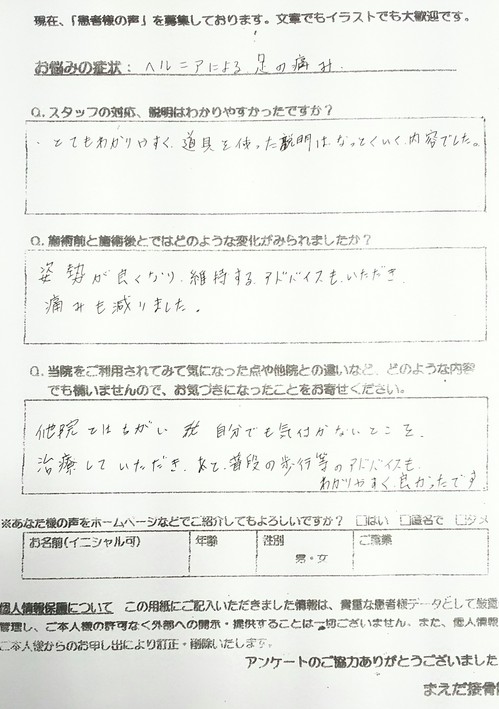 現在、「患者様の声」を募集しております。文章でもイラストでも大歓迎です。
お悩みの症状： ヘルニアによる 足の痛み
Q.スタッフの対応、説明はわかりやすかったですか？
・とてもわかりやすく、道具を使った説明はなっとくいく内容でした。
Q.施術前と施術後とではどのような変化がみられましたか？
姿勢が良くなり、維持するアドバイスもいただき
痛みも減りました。
Q.当院をご利用されてみて気になった点や他院との違いなど、どのような内容
でも構いませんので、お気づきになったことをお寄せください。
他院とはちがい 自分でも気付かないところを
治療していただき、あと、普段の歩行等のアドバイスも
わかりやすく良かったです
※あなた様の声をホームページなどでご紹介してもよろしいですか？ □はい □匿名で □ダメ
お名前(イニシャル可) 年齢 性別 ご職業
男・女
個人情報保護について この用紙にご記入いただきました情報は、貴重な患者様データとして厳重
管理し、ご本人様の許可なく外部への開示・提供することは一切ございません。また、個人情報
ご本人様からのお申し出により訂正・削除いたします。
アンケートのご協力ありがとうございました
まえだ接骨